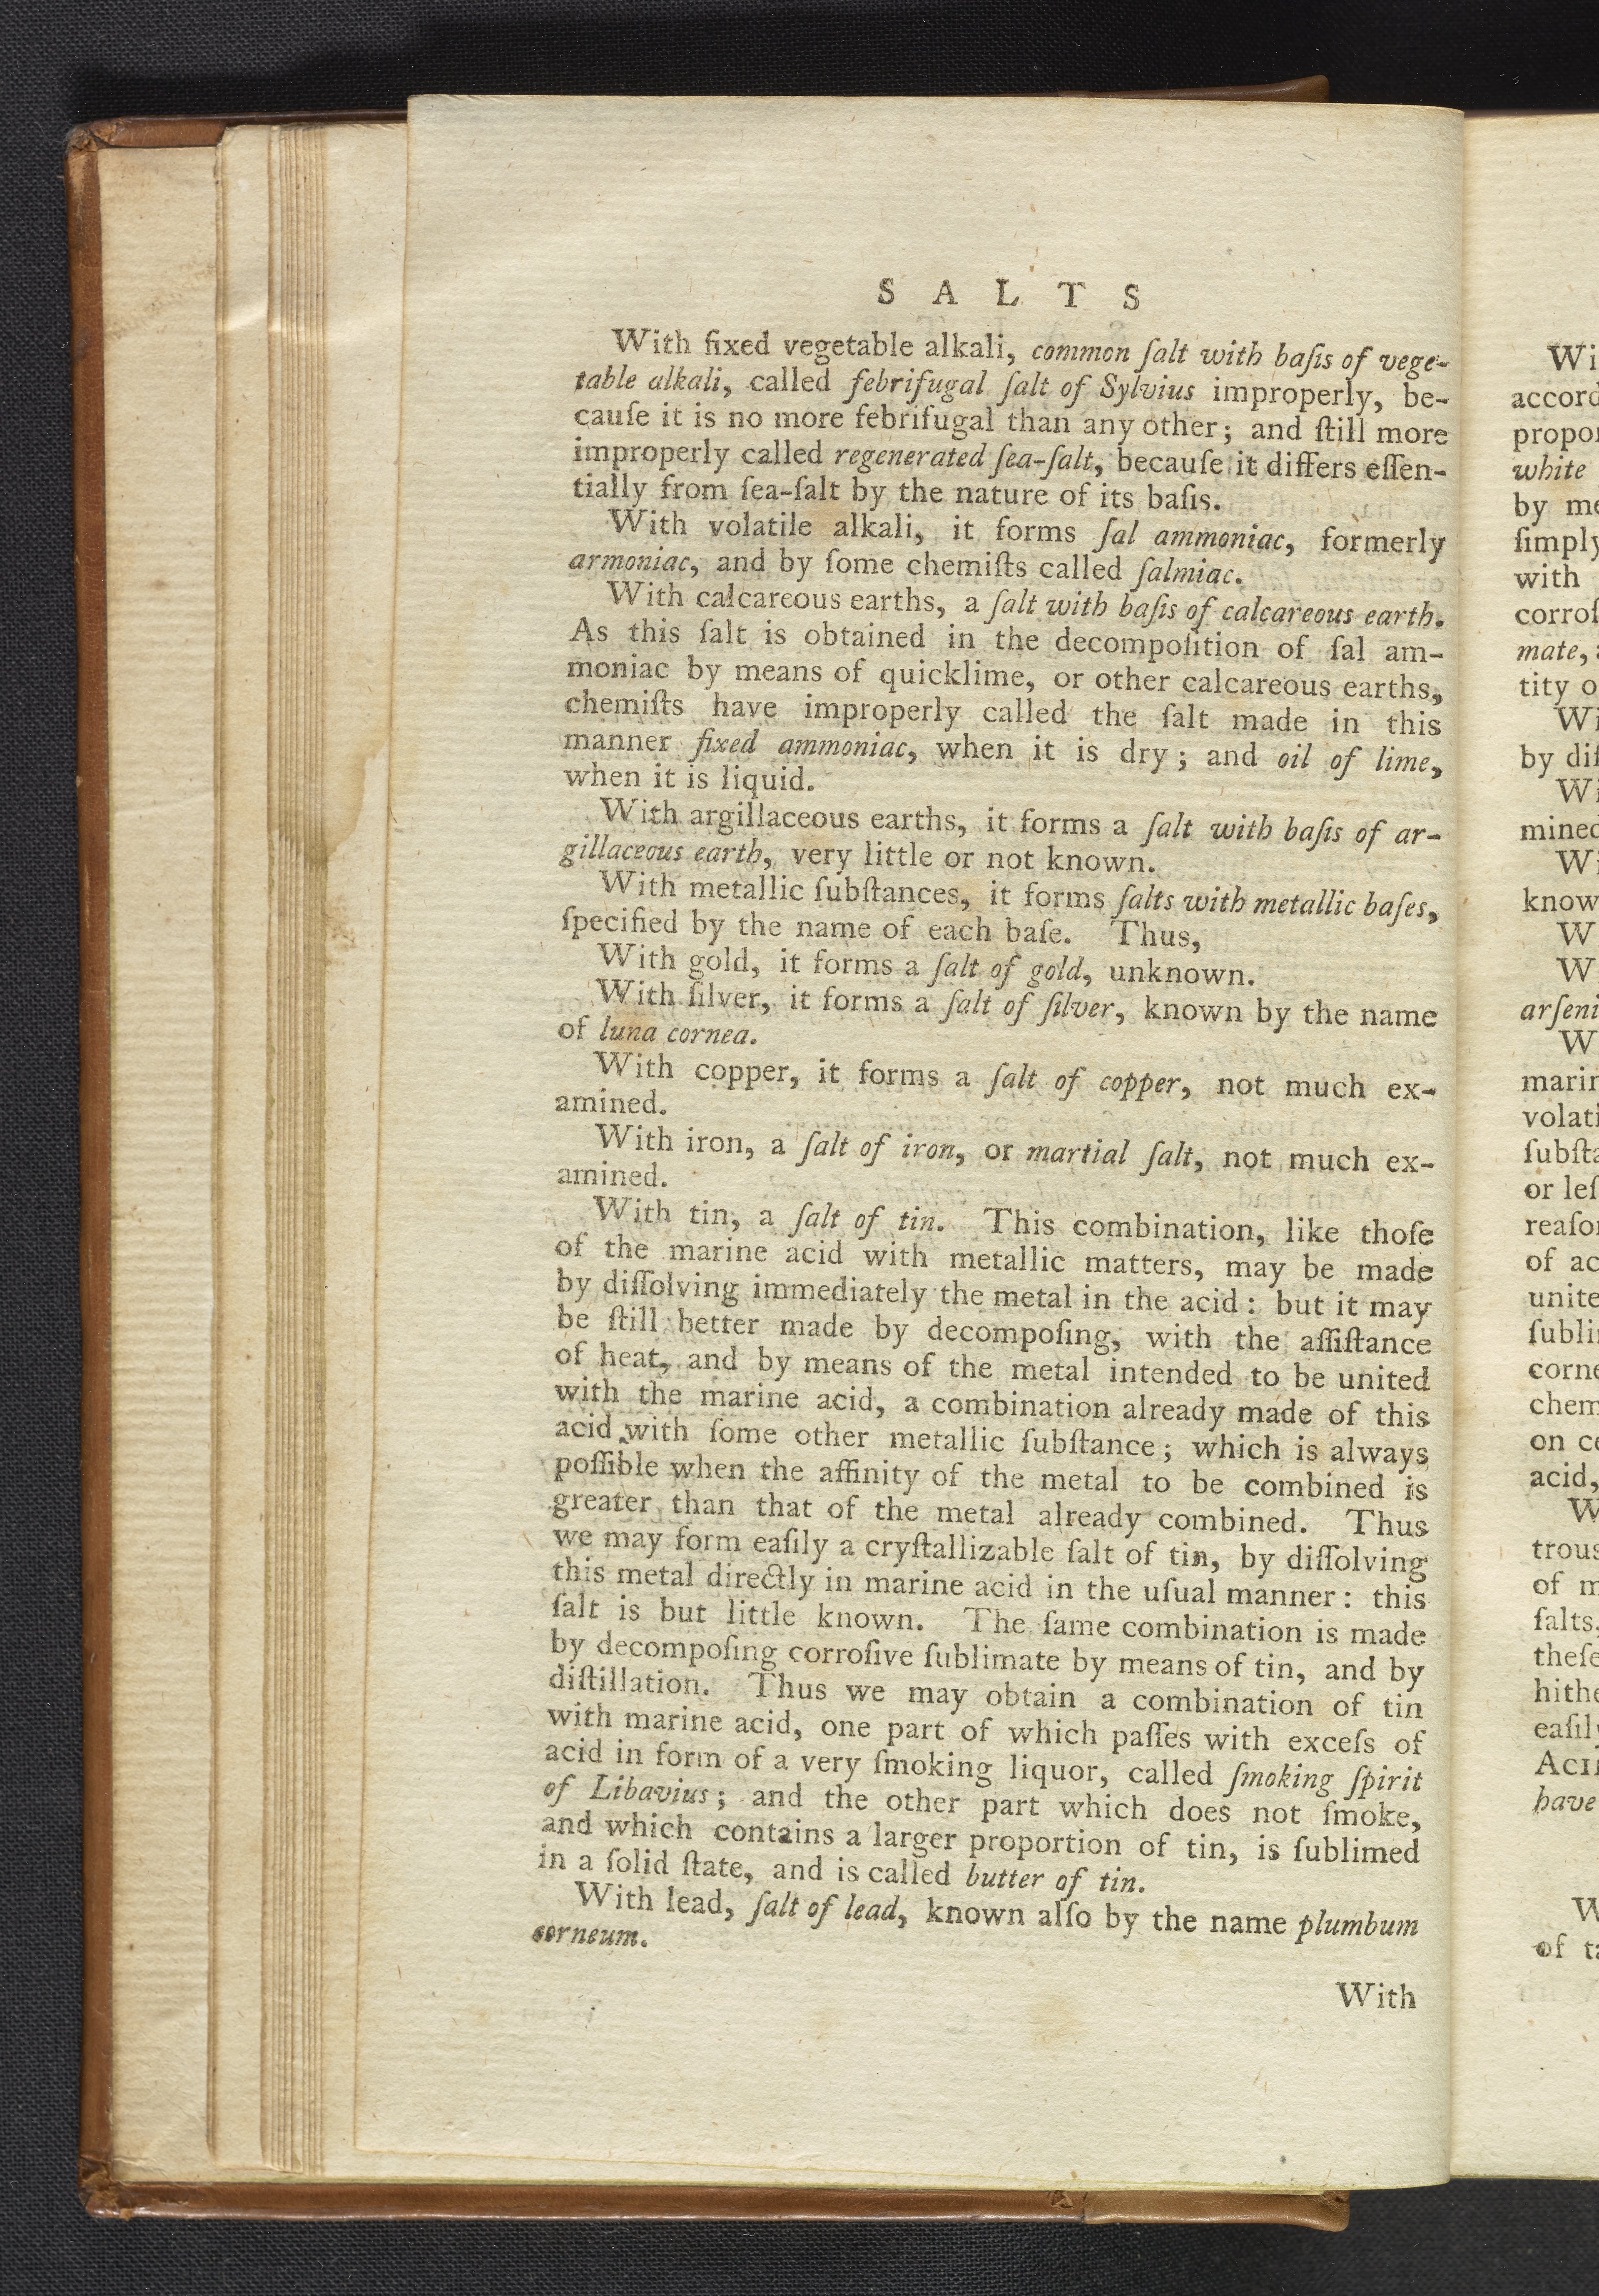 SALTS
With fixed vegetable alkali, common ſalt with baſis of vege-
table alkali, called febrifugal ſalt of Sylvius improperly, be-
cauſe it is no more febrifugal than any other; and ſtill more
improperly called regenerated ſea-ſalt, becauſe it differs eſſen-
tially from ſea-ſalt by the nature of its baſis.
With volatile alkali, it forms ſal ammoniac, formerly
armoniac, and by ſome chemiſts called ſalmiac.
With calcareous earths, a ſalt with baſis of calcareous earth.
As this ſalt is obtained in the decompoſition of ſal am-
moniac by means of quicklime, or other calcareous earths,
chemiſts have improperly called the ſalt made in this
manner fixed ammoniac, when it is dry; and oil of lime,
when it is liquid.
With argillaceous earths, it forms a ſalt with baſis of ar-
gillaceous earth, very little or not known.
With metallic ſubſtances, it forms ſalts with metallic baſes,
ſpecified by the name of each baſe. Thus,
With gold, it forms a ſalt of gold, unknown.
With ſilver, it forms a ſalt of ſilver, known by the name
of luna cornea.
With copper, it forms a ſalt of copper, not much ex-
amined.
With iron, a ſalt of iron, or martial ſalt, not much ex-
amined.
With tin, a ſalt of tin. This combination, like thoſe
of the marine acid with metallic matters, may be made
by diſſolving immediately the metal in the acid: but it may
be ſtill better made by decompoſing, with the aſſiſtance
of heat, and by means of the metal intended to be united
with the marine acid, a combination already made of this
acid with ſome other metallic ſubſtance; which is always
poſſible when the affinity of the metal to be combined is
greater than that of the metal already combined. Thus
we may form eaſily a cryſtallizable ſalt of tin, by diſſolving
this metal directly in marine acid in the uſual manner: this
ſalt is but little known. The ſame combination is made
by decompoſing corroſive ſublimate by means of tin, and by
diſtillation. Thus we may obtain a combination of tin
with marine acid, one part of which paſſes with exceſs of
acid in form of a very ſmoking liquor, called ſmoking ſpirit
of Libavius; and the other part which does not ſmoke,
and which contains a larger proportion of tin, is ſublimed
in a ſolid ſtate, and is called butter of tin.
With lead, ſalt of lead, known alſo by the name plumbum
corneum.
With
Wi
accord
propor
white
by me
ſimply
with
corroſ
mate,
tity o
Wi
by diſ
Wi
mined
Wi
know
W
W
arſeni
W
marin
volati
ſubſta
or leſ
reaſon
of ac
unite
ſublim
corne
chem
on ce
acid,
W
trous
of m
ſalts.
theſe
hithe
eaſily
ACID
have
W
of ta